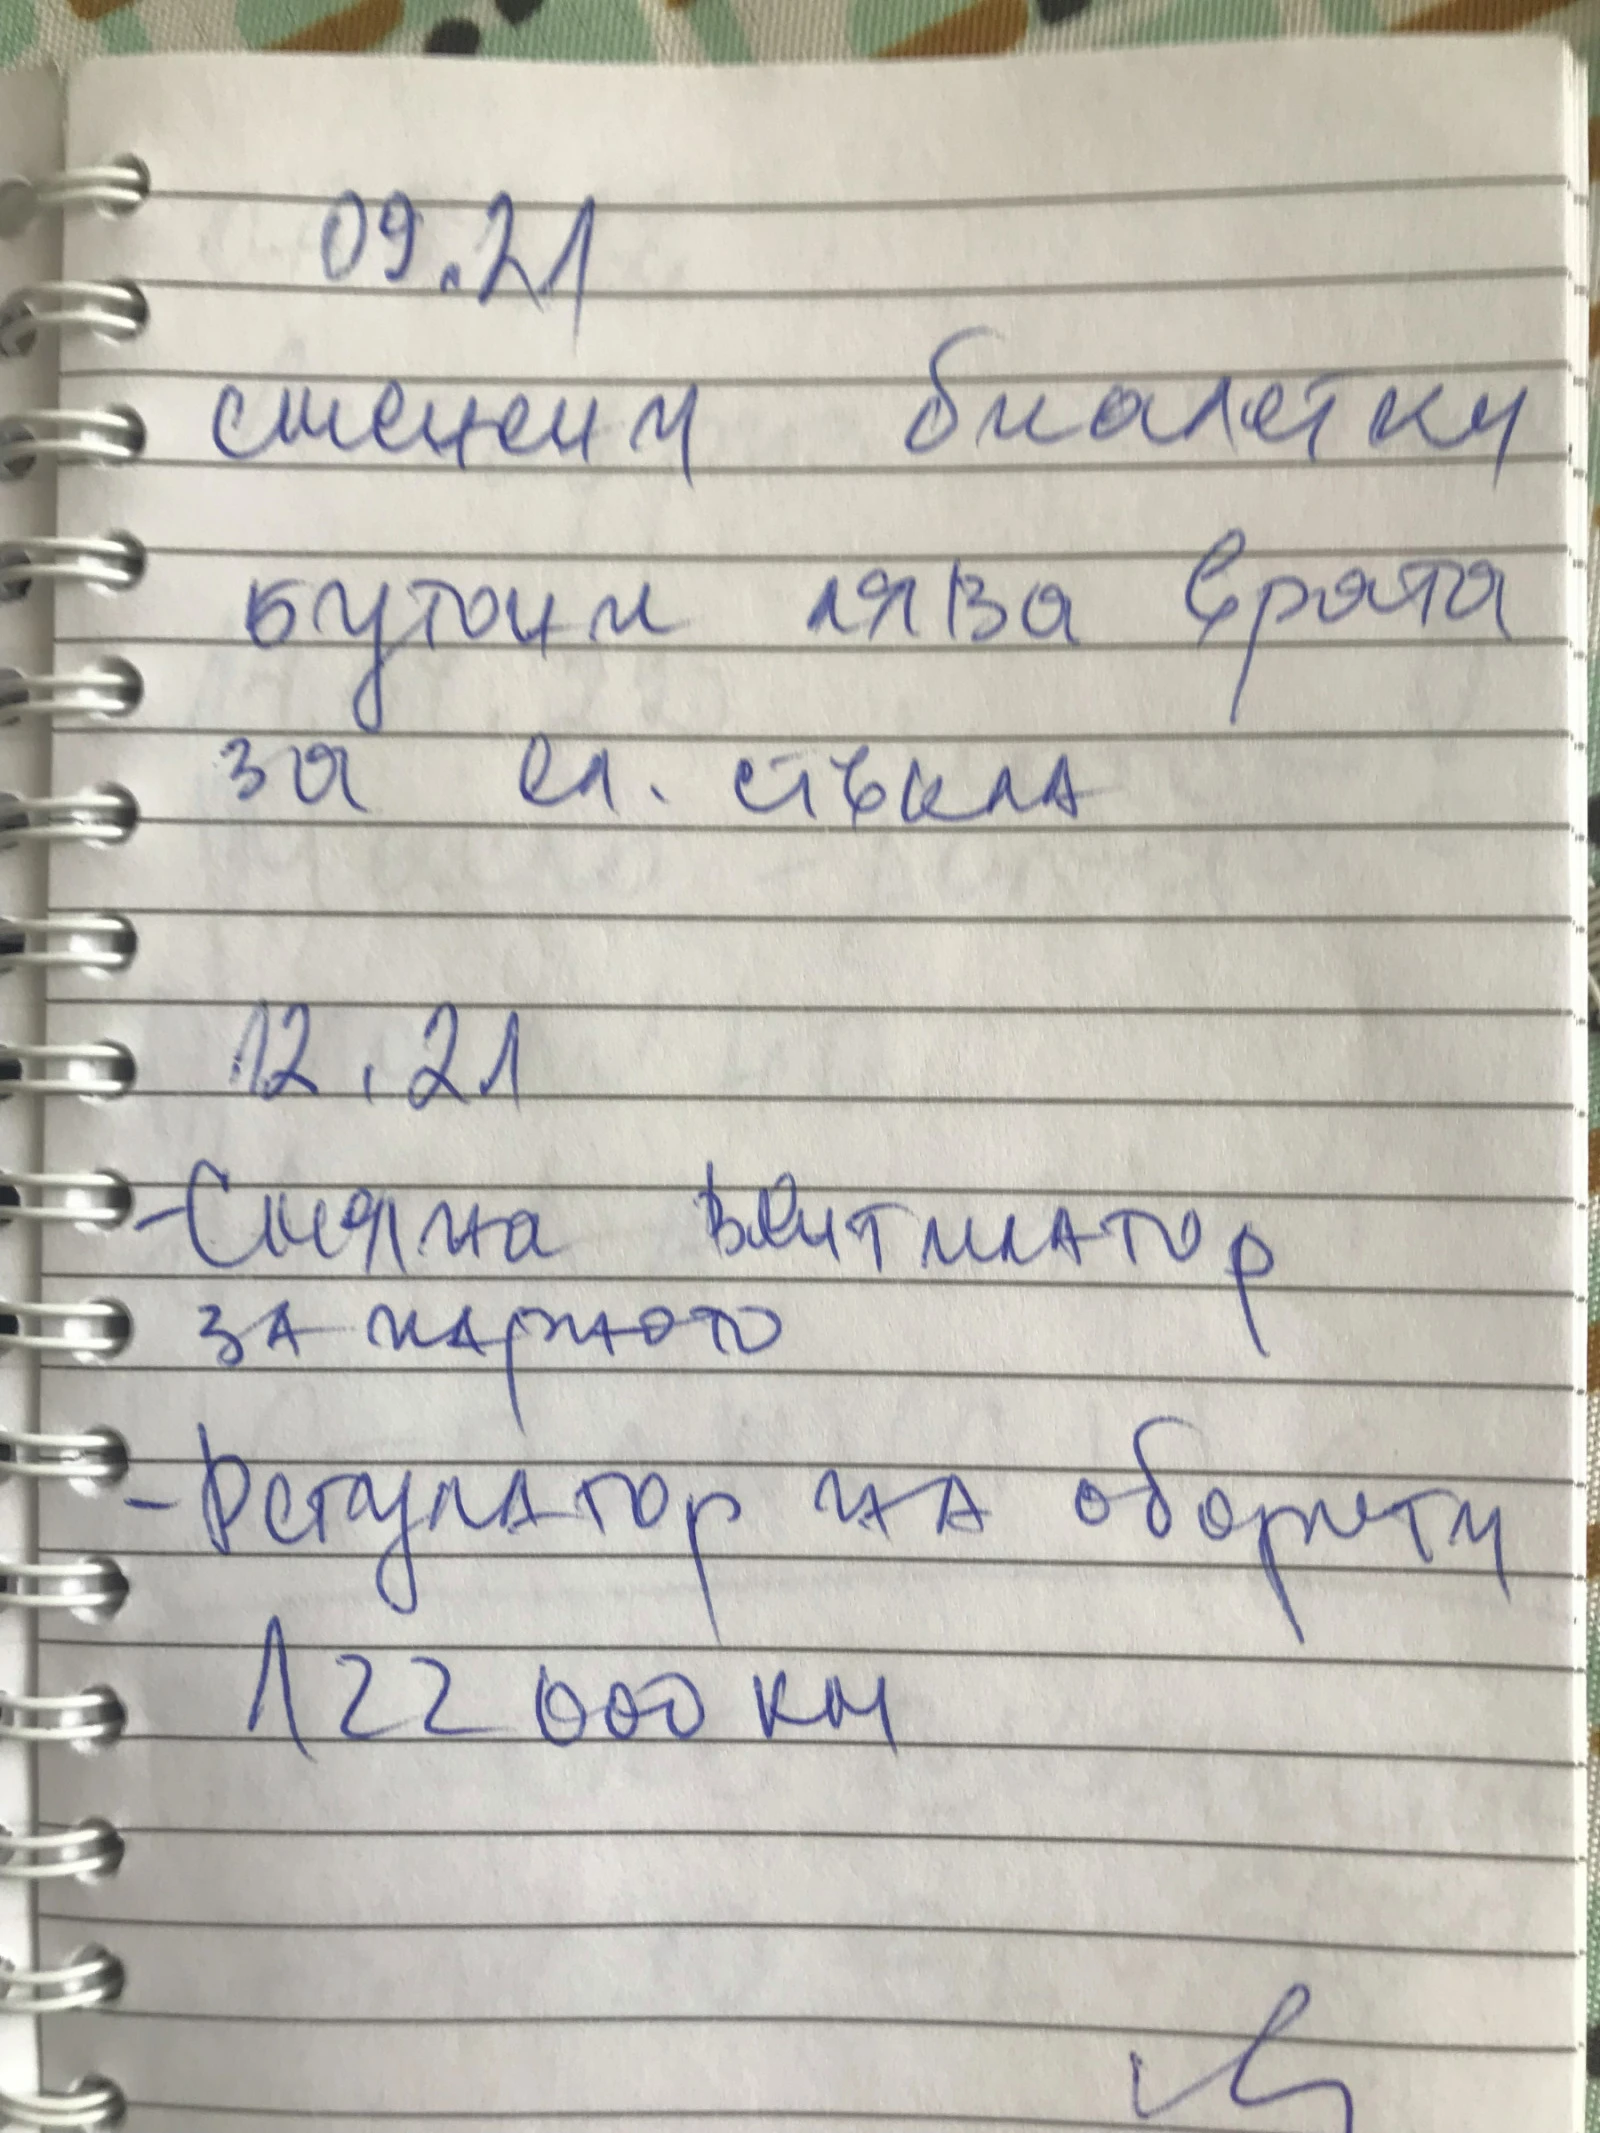 09.21
сменени биалетки
бутони лява врата
за ел. стъкла
12.21
-Смяна вентилатор
за парното
-Регулатор на оборети
122 000 км